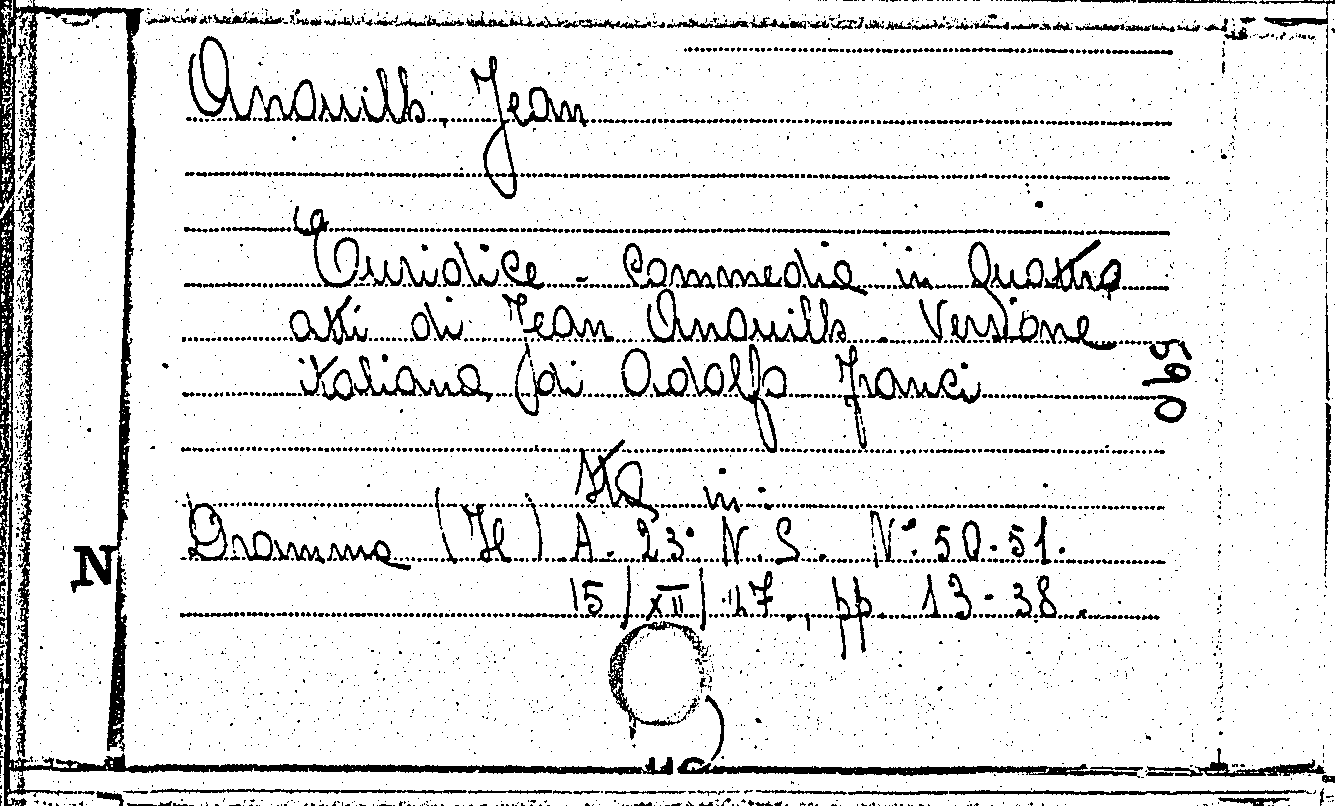 Anouilh, Jean
Euridice - Commedia in quattro
atti di Jean Anouilh. Versione
italiana di Adolfo Franci
Sta in:
Dramma (Il) A. 23° N.S. N° 50-51.
15/XII/47, pp. 13-38.
N